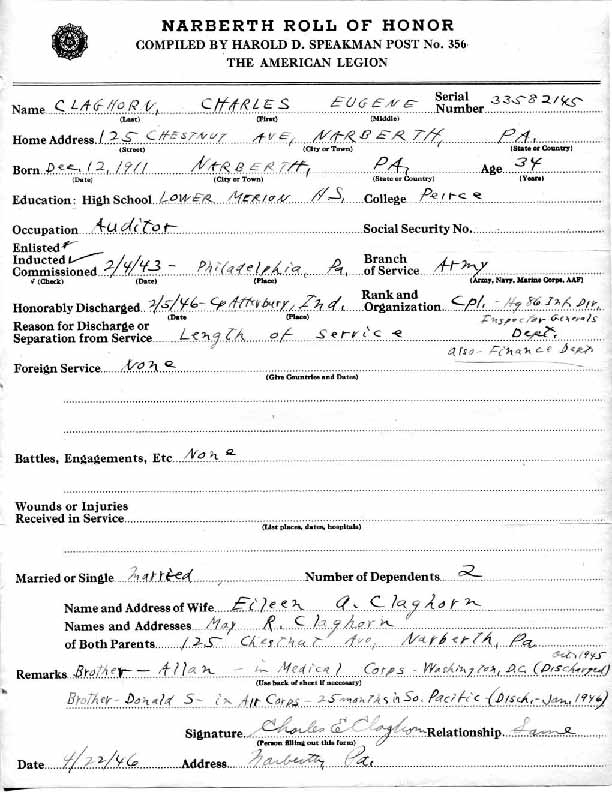 NARBERTH ROLL OF HONOR
COMPILED BY HAROLD D. SPEAKMAN POST No. 356
THE AMERICAN LEGION
Name CLAGHORN, CHARLES EUGENE Serial Number 33582145
(Last) (First) (Middle)
Home Address 125 CHESTNUT AVE, NARBERTH, PA.
(Street) (City or Town) (State or Country)
Born Dec. 12, 1911 NARBERTH, PA, Age 34
(Date) (City or Town) (State or Country) (Years)
Education: High School LOWER MERION HS, College Peirce
Occupation Auditor Social Security No.
Enlisted
Inducted ✓ Branch
Commissioned 2/4/43 - Philadelphia, Pa. of Service Army
√ (Check) (Date) (Place) (Army, Navy, Marine Corps, AAF)
Honorably Discharged 2/5/46 - Cp Atterbury, Ind. Rank and Organization Cpl. - Hq 86 Inf. Div.
(Date (Place) Inspector Generals
Reason for Discharge or
Separation from Service Length of service Dept.
also - Finance Dept.
Foreign Service None
(Give Countries and Dates)
Battles, Engagements, Etc None
Wounds or Injuries
Received in Service
(List places, dates, hospitals)
Married or Single Married Number of Dependents 2
Name and Address of Wife Eileen A. Claghorn
Names and Addresses May R. Claghorn
of Both Parents 125 Chestnut Ave, Narberth, Pa
Oct. 1945
Remarks Brother - Allan - in Medical Corps - Washington, D.C. (Discharged)
(Use back of sheet if necessary)
Brother - Donald S - in Air Corps - 25 months in So. Pacific - (Disch. - Jan. 1946)
Signature Charles E Claghorn Relationship Same
(Person filling out this form)
Date 4/22/46 Address Narberth, Pa.